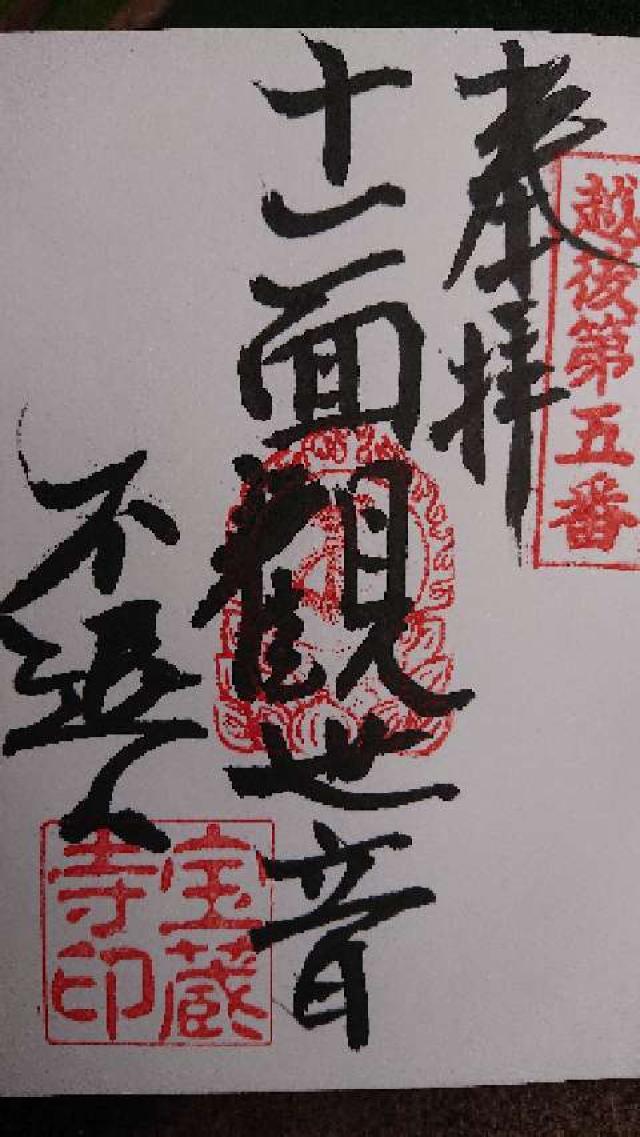 越後第五番
奉拝
十一面観世音
不退
宝蔵
寺印